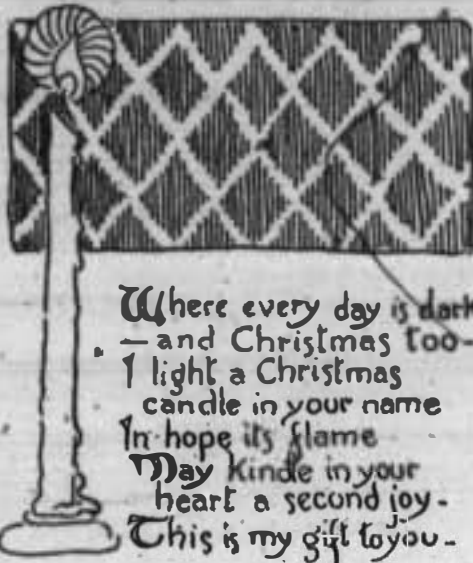 Where every day is dark
— and Christmas too-
I light a Christmas
candle in your name
In hope its flame
May Kindle in your
heart a second joy-
This is my gift to you-